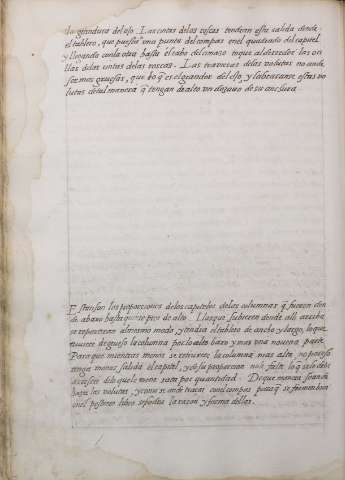 la grandeza del oso. Las cintas delas roscas tendran esta salida desde
el tablero, que puesta una punta del compas en el quadrado del capitel
y llegando con la otra hasta el cabo del cimazo toque al derredor las ori
llas delas cintas delas roscas. Las traviesas delas volutas no an de
ser mas gruesas, que lo q̃ es el grandor del oso, y labraranse estas vo
lutas de tal manera q̃ tengan de alto un dozavo de su anchura
Estas son las proporciones delos capiteles delas columnas q̃ fueren den
de abaxo hasta quinze pies de alto. Las que subieren dende alli arriba
se repartiran al mesmo modo, y tendra el tablero de ancho y largo, lo que
tuviere de grueso la columna por lo alto baxo y mas una novena parte
Para que mientras menos se retruxere la columna mas alta, no por eso
tenga menos salida el capitel, y de su proporcion no le falte lo q̃ se le debe
acrescer de lo que le viene rata por cantidad. De que manera se an de
hazer las volutas, y como se an de traçar con el compas para q̃ se formen bien
en el postrero libro se pondra la razon y forma dellas.